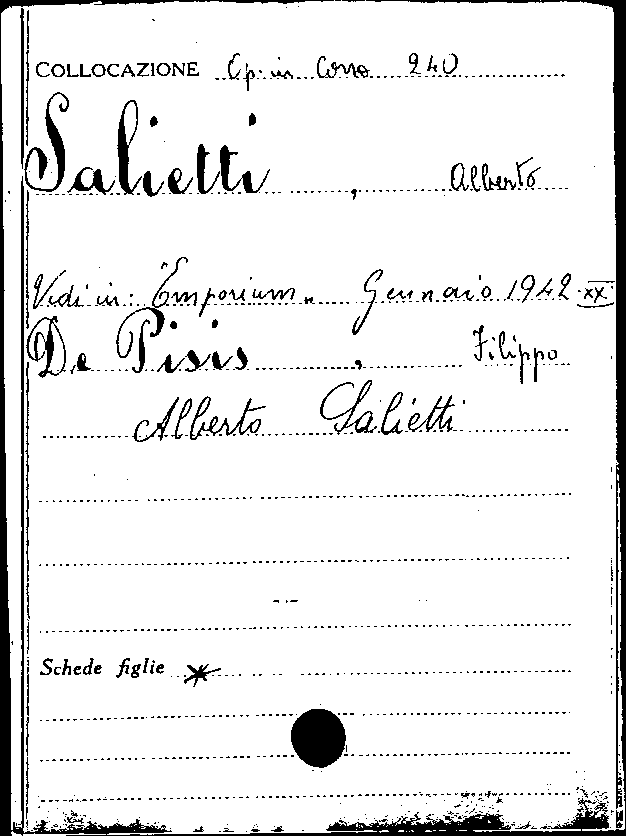 COLLOCAZIONE Op. in Corso 240
Salietti, Alberto
Vedi in: "Emporium„ Gennaio 1942 XX
De Pisis, Filippo
Alberto Salietti
Schede figlie *